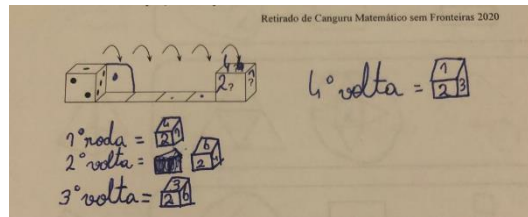 Retirado de Canguru Matemático sem Fronteiras 2020
4
2? 1?
4º volta = 1 2 3
1º roda = 4 2 1
2º volta = 6 2
3º volta = 3 2 6